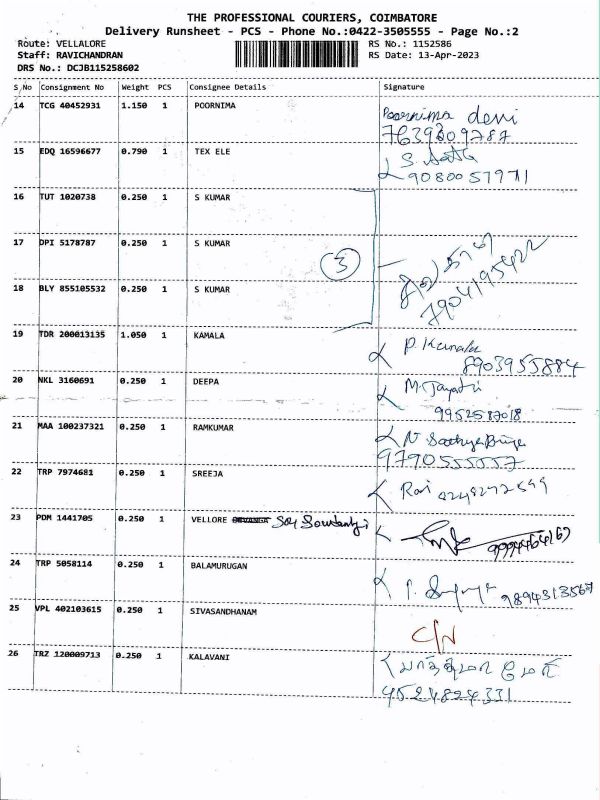 THE PROFESSIONAL COURIERS, COIMBATORE
Delivery Runsheet - PCS - Phone No.:0422-3505555 - Page No.:2
Route: VELLALORE RS No.: 1152586
Staff: RAVICHANDRAN RS Date: 13-Apr-2023
DRS No.: DCJB115258602
S No Consignment No Weight PCS Consignee Details Signature
14 TCG 40452931 1.150 1 POORNIMA Poornima devi
7639309787
15 EDQ 16596677 0.790 1 TEX ELE S.
9080057971
16 TUT 1020738 0.250 1 S KUMAR
17 DPI 5178787 0.250 1 S KUMAR
3
18 BLY 855105532 0.250 1 S KUMAR
7904195422
19 TDR 200013135 1.050 1 KAMALA P. Kamala
8903955884
20 NKL 3160691 0.250 1 DEEPA M.
9952587018
21 MAA 100237321 0.250 1 RAMKUMAR N Sathya
9790555557
22 TRP 7974681 0.250 1 SREEJA Ravi
23 PDM 1441705 0.250 1 VELLORE
24 TRP 5058114 0.250 1 BALAMURUGAN P.
9894313567
25 VPL 402103615 0.250 1 SIVASANDHANAM C/N
26 TRZ 120009713 0.250 1 KALAVANI
4524824331